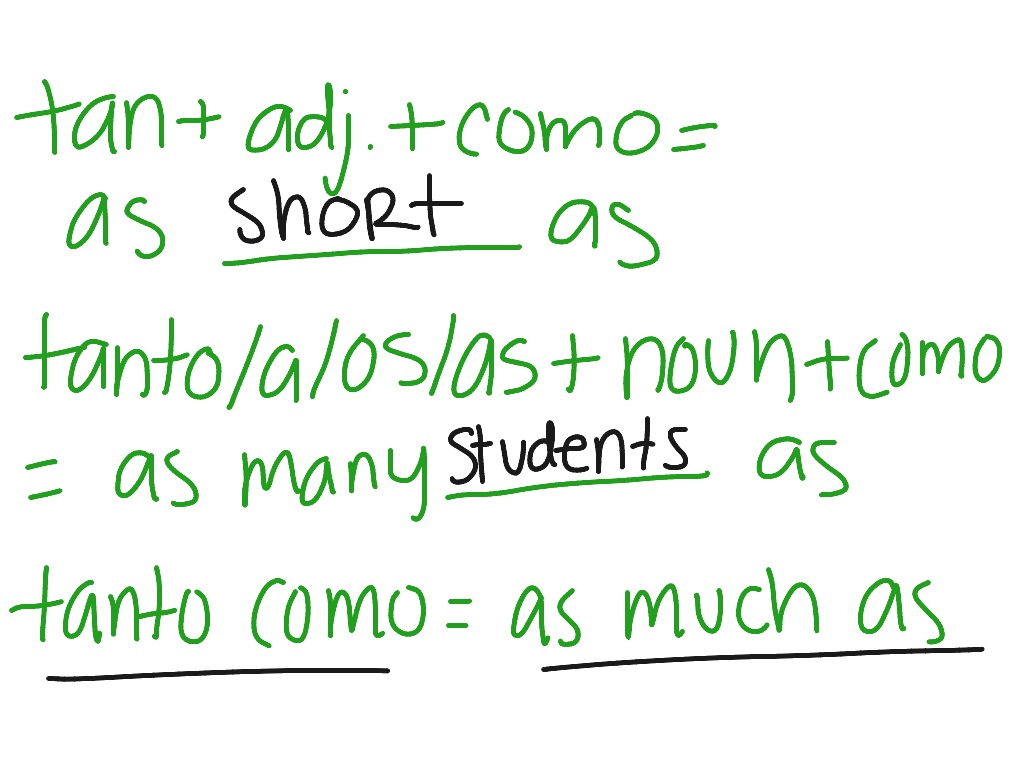 tan + adj. + como =
as short as
tanto/a/os/as + noun + como
= as many students as
tanto como = as much as